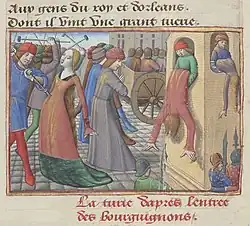 Aux gens du roy et dorleans.
Dont il vint une grant tuerie.
La turie daprès lentree
des Bourguignons.